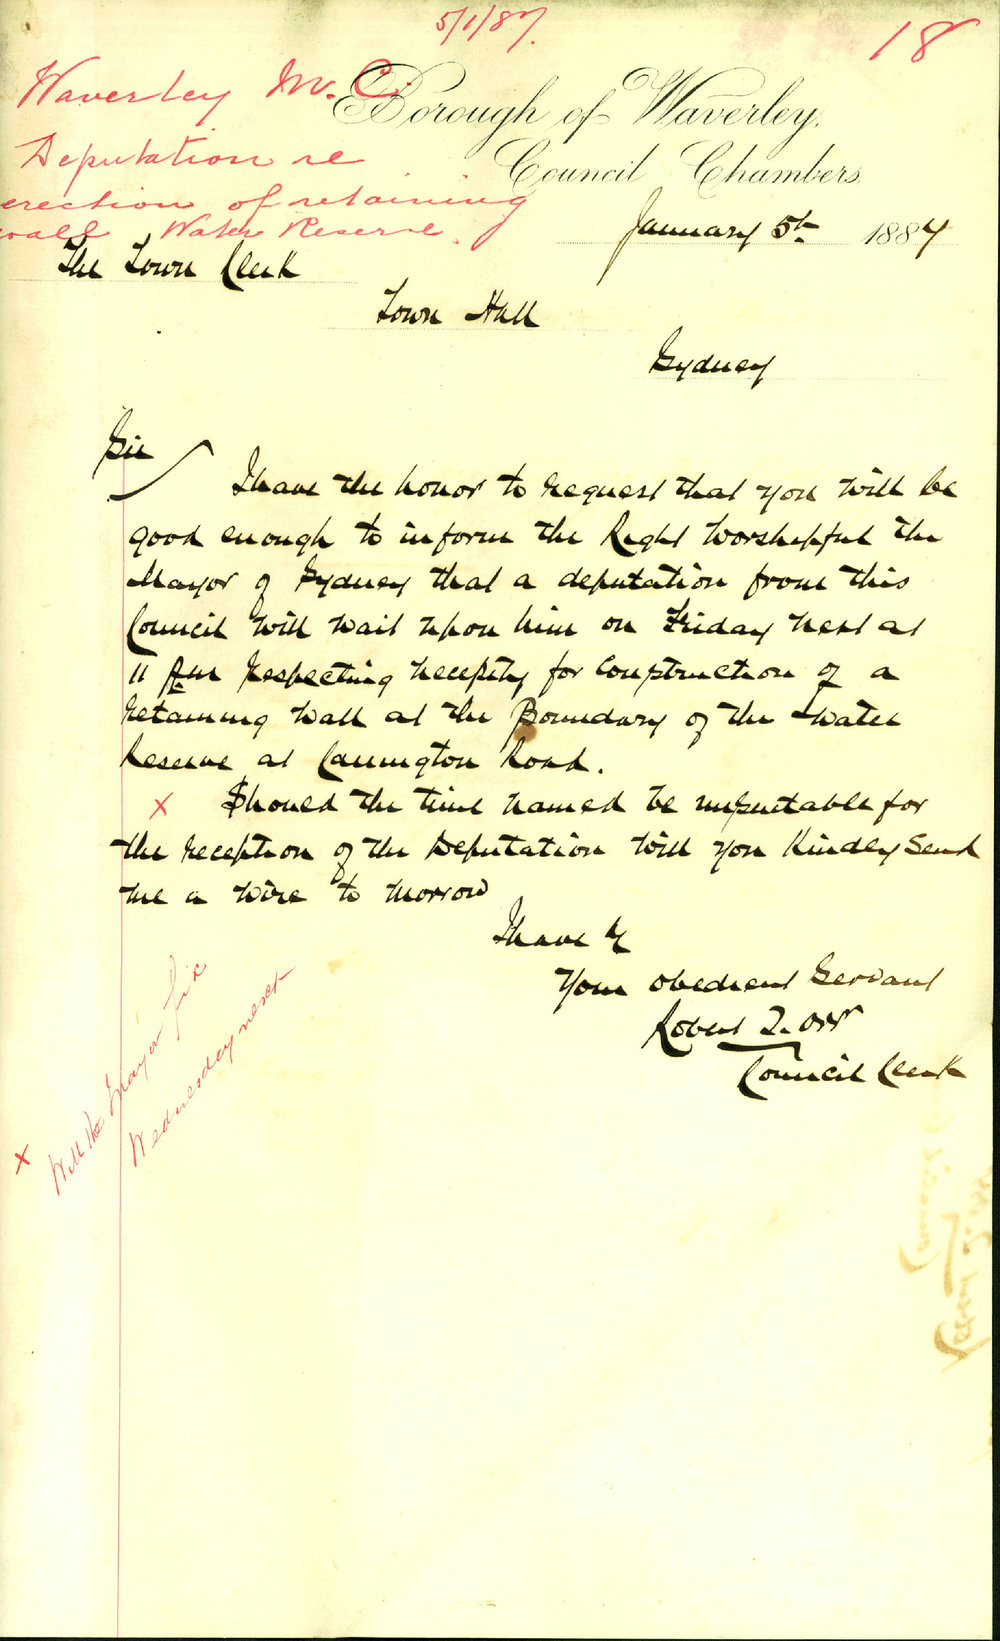 5/1/87.
18
Waverley M. C.
Borough of Waverley.
Deputation re
Council Chambers
erection of retaining
wall Water Reserve.
January 5th 1887
The Town Clerk
Town Hall
Sydney
Sir
I have the honor to request that you will be
good enough to inform the Right Worshipful the
Mayor of Sydney that a deputation from this
Council will wait upon him on Friday next at
11 am respecting necessity for construction of a
retaining wall at the Boundary of the Water
Reserve at Carrington Road.
x Should the time named be unsuitable for
the reception of the Deputation will you kindly send
me a wire to morrow
I have &
Your obedient Servant
Robert T. Orr
Council Clerk
x Will the Mayor fix
Wednesday next